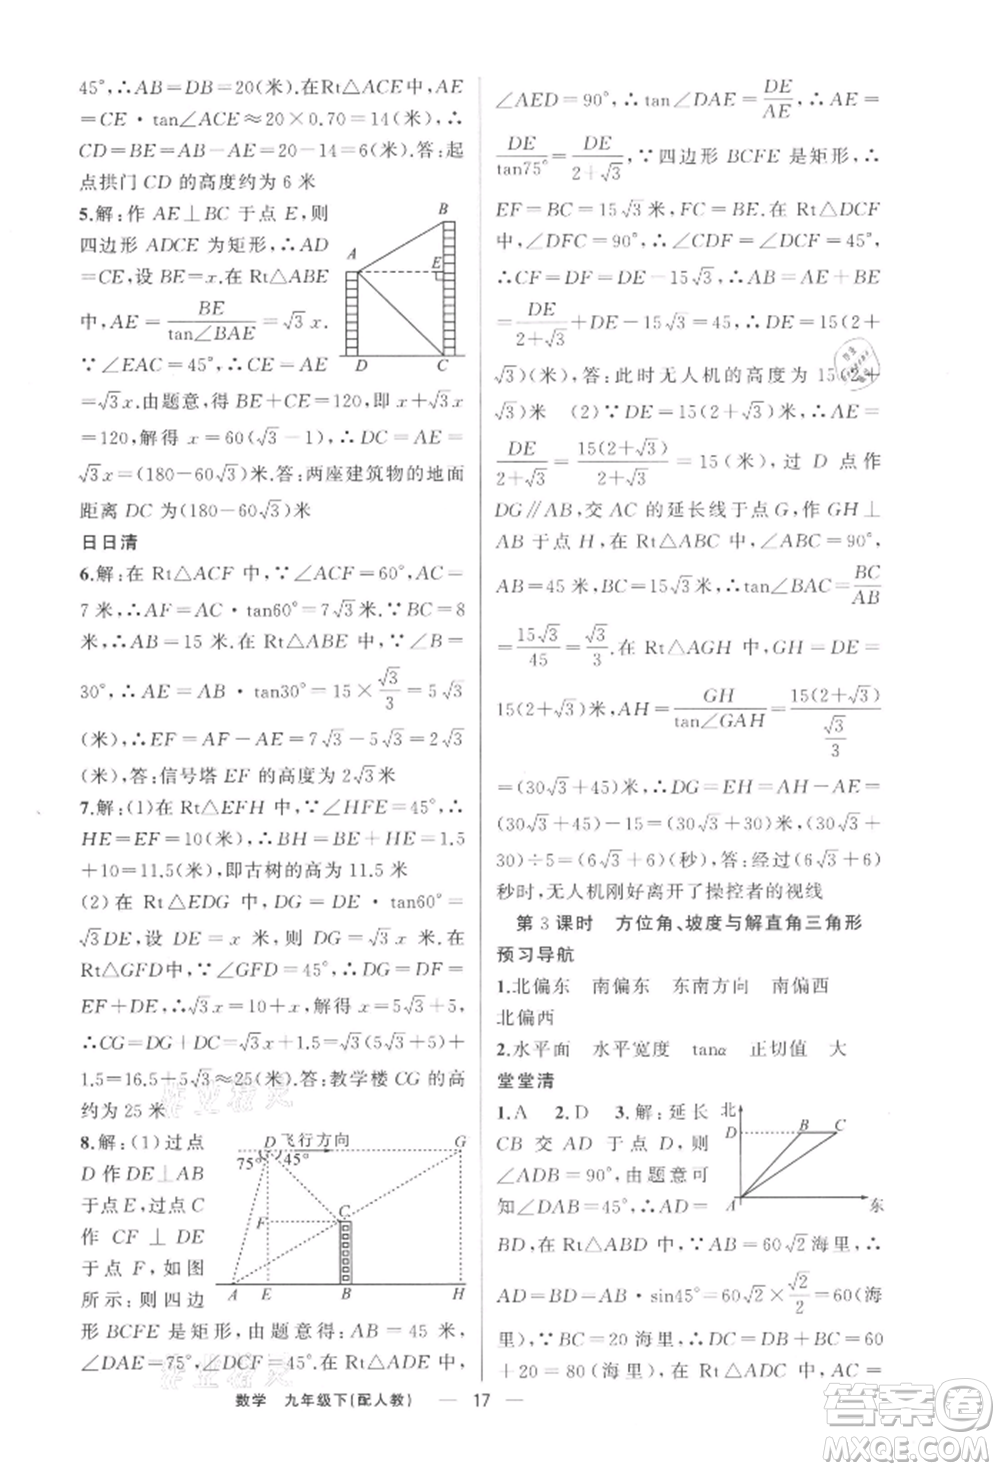 45°,∴AB=DB=20(米).在Rt△ACE中,AE
=CE·tan∠ACE≈20×0.70=14(米),∴
CD=BE=AB-AE=20-14=6(米).答:起
点拱门CD的高度约为6米
5.解:作AE⊥BC于点E,则
四边形ADCE为矩形,∴AD
=CE,设BE=x.在Rt△ABE
中,AE=BE/tan∠BAE=√3x.
∵∠EAC=45°,∴CE=AE
=√3x.由题意,得BE+CE=120,即x+√3x
=120,解得x=60(√3-1),∴DC=AE=
√3x=(180-60√3)米.答:两座建筑物的地面
距离DC为(180-60√3)米
B
A
E
D
C
日日清
6.解:在Rt△ACF中,∵∠ACF=60°,AC=
7米,∴AF=AC·tan60°=7√3米.∵BC=8
米,∴AB=15米.在Rt△ABE中,∵∠B=
30°,∴AE=AB·tan30°=15×√3/3=5√3
(米),∴EF=AF-AE=7√3-5√3=2√3
(米),答:信号塔EF的高度为2√3米
7.解:(1)在Rt△EFH中,∵∠HFE=45°,∴
HE=EF=10(米),∴BH=BE+HE=1.5
+10=11.5(米),即古树的高为11.5米
(2)在Rt△EDG中,∵∠GDE=60°,∴DG=
√3DE,设DE=x米,则DG=√3x米.在
Rt△GFD中,∵∠GFD=45°,∴GD=DF=
EF+DE,∴√3x=10+x,解得x=5√3+5,
∴CG=DG+DC=√3x+1.5=√3(5√3+5)+
1.5=16.5+5√3≈25(米).答:教学楼CG的高
约为25米
8.解:(1)过点
D作DE⊥AB
于点E,过点C
作CF⊥DE
于点F,如图
所示:则四边
形BCFE是矩形,由题意得:AB=45米,
∠DAE=75°,∠DCF=45°.在Rt△ADE中,
D 飞行方向 G
75° 45°
F
C
A E B H
∠AED=90°,∴tan∠DAE=DE/AE,∴AE=
DE/tan75°=DE/2+√3,∵四边形BCFE是矩形,∴
EF=BC=15√3米,FC=BE.在Rt△DCF
中,∠DFC=90°,∴∠CDF=∠DCF=45°,
∴CF=DF=DE-15√3,∴AB=AE+BE=
DE/2+√3+DE-15√3=45,∴DE=15(2+
√3)(米),答:此时无人机的高度为15(2+
√3)米 (2)∵DE=15(2+√3)米,∴AE=
DE/2+√3=15(2+√3)/2+√3=15(米),过D点作
DG∥AB,交AC的延长线于点G,作GH⊥
AB于点H,在Rt△ABC中,∠ABC=90°,
AB=45米,BC=15√3米,∴tan∠BAC=BC/AB
=15√3/45=√3/3.在Rt△AGH中,GH=DE=
15(2+√3)米,AH=GH/tan∠GAH=15(2+√3)/√3/3
=(30√3+45)米,∴DG=EH=AH-AE=
(30√3+45)-15=(30√3+30)米,(30√3+
30)÷5=(6√3+6)(秒),答:经过(6√3+6)
秒时,无人机刚好离开了操控者的视线
第3课时 方位角、坡度与解直角三角形
预习导航
1.北偏东 南偏东 东南方向 南偏西
北偏西
2.水平面 水平宽度 tanα 正切值 大
堂堂清
1.A 2.D 3.解:延长
CB交AD于点D,则
∠ADB=90°,由题意可
知∠DAB=45°,∴AD=
BD,在Rt△ABD中,∵AB=60√2海里,∴
AD=BD=AB·sin45°=60√2×√2/2=60(海
里),∵BC=20海里,∴DC=DB+BC=60
+20=80(海里),在Rt△ADC中,由勾股定
北
D B C
A 东
数学 九年级下(配人教) — 17 —
答案圈
MXQE.COM